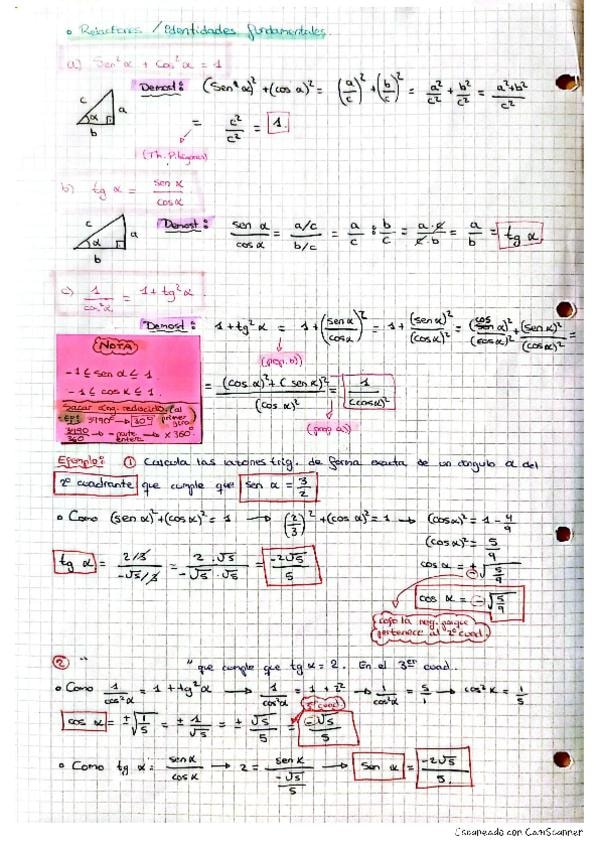 • Relaciones / Identidades fundamentales.
a) Sen²α + Cos²α = 1
Demost: (Sen α)² + (cos α)² = (a/c)² + (b/c)² = a²/c² + b²/c² = a²+b²/c²
c a α b
= c²/c² = 1.
(Th. Pitágoras)
b) tg α = sen α/cos α
Demost: sen α/cos α = a/c / b/c = a/c : b/c = a·c/c·b = a/b = tg α
c a α b
c) 1/cos²α = 1 + tg²α.
Demost: 1 + tg²α = 1 + (sen α/cos α)² = 1 + (sen α)²/(cos α)² = (cos α)²/(cos α)² + (sen α)²/(cos α)² =
(prop. b)
NOTA
-1 ≤ sen α ≤ 1.
-1 ≤ cos α ≤ 1.
= (cos α)² + (sen α)²/(cos α)² = 1/(cos α)²
(prop a)
Sacar ang. reducido (al primer giro)
3190° → 310°
3190/360 → - parte entera → x 360°
Ejemplo: ① Calcula las razones trig. de forma exacta de un ángulo α del
2º cuadrante que cumple que sen α = 3/2
• Como (sen α)² + (cos α)² = 1 → (2/3)² + (cos α)² = 1 → (cos α)² = 1 - 4/9
(cos α)² = 5/9
cos α = ±√5/9
cos α = -√5/9
tg α = 2/3 / -√5/3 = 2·√5 / -√5·√5 = -2√5/5
cojo la neg. porque
pertenece al 2º cuad.
② " " que cumple que tg α = 2. En el 3er cuad..
• Como 1/cos²α = 1 + tg²α → 1/cos²α = 1 + 2² → 1/cos²α = 5/1 → cos²α = 1/5
3º cuad.
cos α = ±√1/5 = ± 1/√5 = ± √5/5 = -√5/5
• Como tg α = sen α/cos α → 2 = sen α / -√5/5 → sen α = -2√5/5.
Escaneado con CamScanner